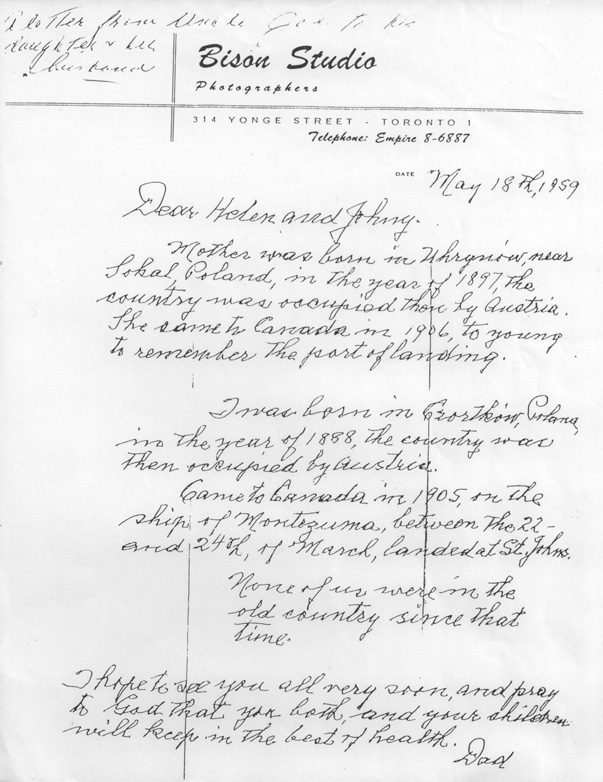 A letter from Uncle Joe to his
daughter & her
husband
Bison Studio
Photographers
314 YONGE STREET - TORONTO 1
Telephone: Empire 8-6887
DATE May 18th, 1959
Dear Helen and Johny.
Mother was born in Uhrynów, near
Sokal, Poland, in the year of 1897, the
country was occupied then by Austria.
She came to Canada in 1906, to young
to remember the port of landing.
I was born in Czortków, Poland,
in the year of 1888, the country was
then occupied by Austria.
Came to Canada in 1905, on the
ship of Montezuma, between the 22-
and 24th, of March, landed at St. Johns.
None of us were in the
old country since that
time.
I hope to see you all very soon, and pray
to God that you both, and your children
will keep in the best of health.
Dad